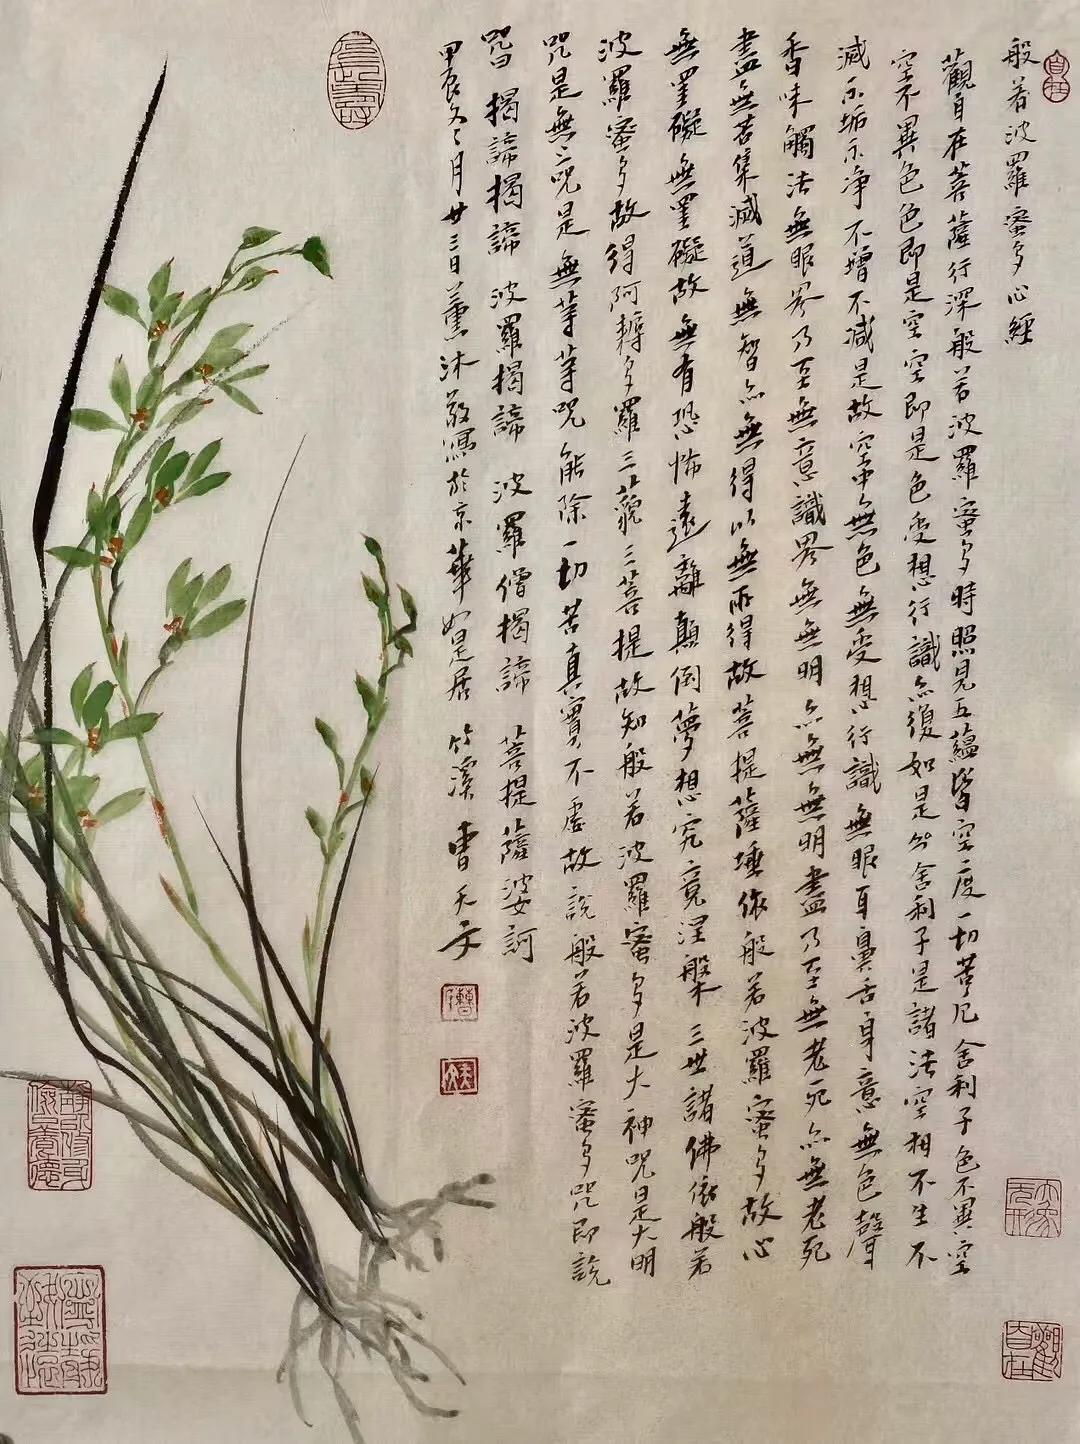 自在
般若波羅蜜多心經
觀自在菩薩行深般若波羅蜜多時照見五蘊皆空度一切苦厄舍利子色不異空
空不異色色即是空空即是色受想行識亦復如是舍利子是諸法空相不生不
滅不垢不淨不增不減是故空中無色無受想行識無眼耳鼻舌身意無色聲
香味觸法無眼界乃至無意識界無無明亦無無明盡乃至無老死亦無老死
盡無苦集滅道無智亦無得以無所得故菩提薩埵依般若波羅蜜多故心
無罣礙無罣礙故無有恐怖遠離顛倒夢想究竟涅槃三世諸佛依般若
波羅蜜多故得阿耨多羅三藐三菩提故知般若波羅蜜多是大神咒是大明
咒是無上咒是無等等咒能除一切苦真實不虛故說般若波羅蜜多咒即說
咒曰 揭諦揭諦 波羅揭諦 波羅僧揭諦 菩提薩婆訶
甲辰冬冬月廿三日薰沐敬寫於京華如是居 竹溪 曹天予
長壽
大象無形
觀自在
靜以修身儉以養德
寧靜致遠